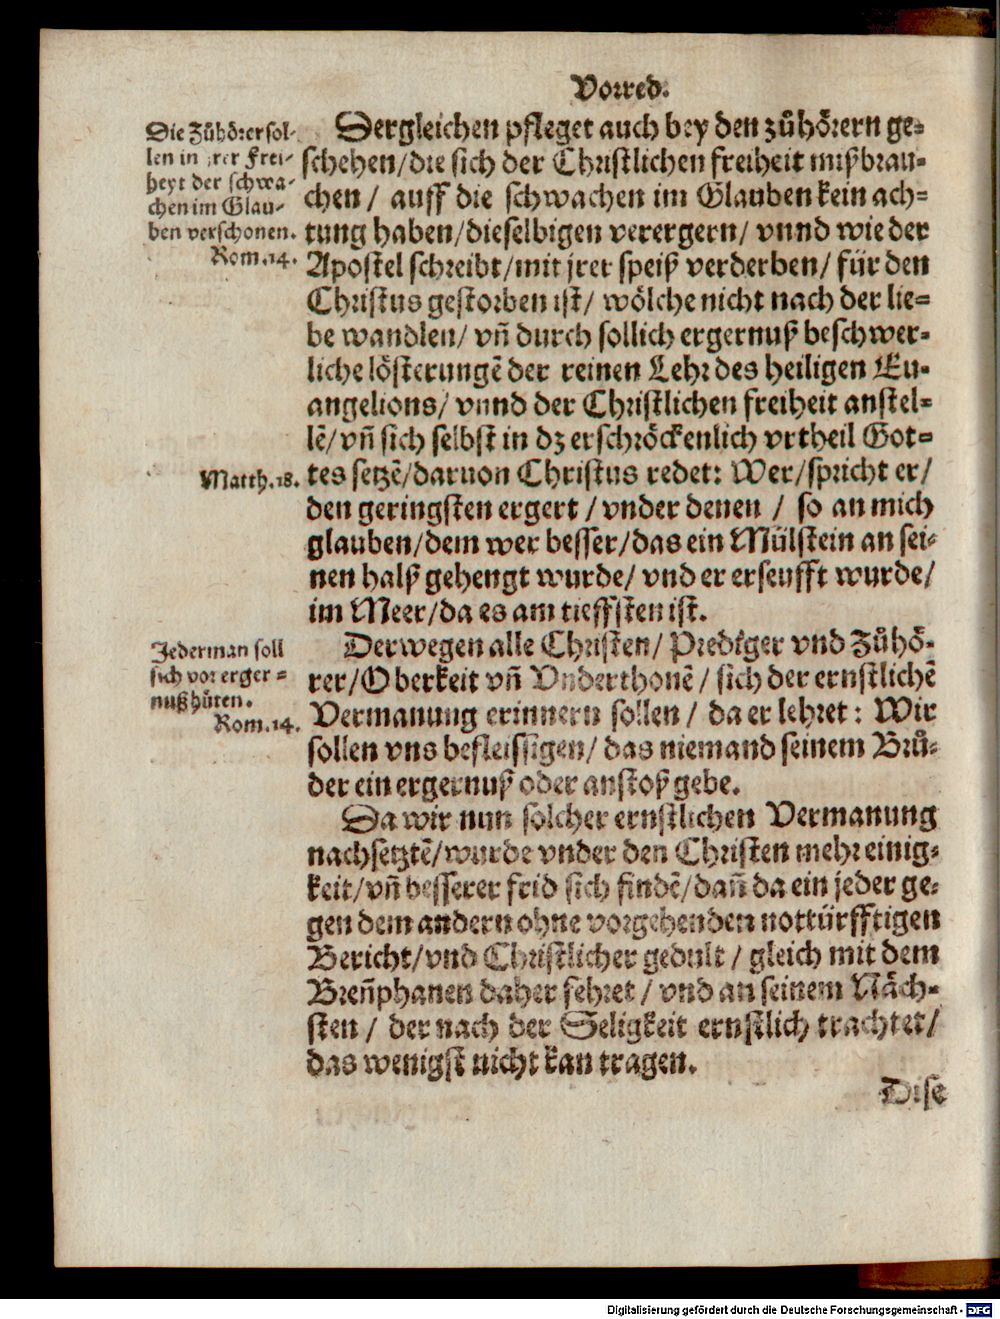 Vorred.
Die Zůhörer sol-
len in jrer Frei-
heyt der schwa-
chen im Glau-
ben verschonen.
Rom.14.
Dergleichen pfleget auch bey den zůhörern ge=
schehen/die sich der Christlichen freiheit mißbrau-
chen / auff die schwachen im Glauben kein ach=
tung haben/dieselbigen verergern/ vnnd wie der
Apostel schreibt/mit jrer speiß verderben/ für den
Christus gestorben ist/ wölche nicht nach der lie=
be wandlen/ vñ durch sollich ergernuß beschwer-
liche lösterungẽ der reinen Lehr des heiligen Eu-
angelions/ vnnd der Christlichen freiheit anstel=
lẽ/vñ sich selbst in dz erschröckenlich vrtheil Got=
Matth.18.
tes setzẽ/daruon Christus redet: Wer/spricht er/
den geringsten ergert / vnder denen / so an mich
glauben/dem wer besser/das ein Mülstein an sei-
nen halß gehengt wurde/ vnd er erseufft wurde/
im Meer/da es am tieffsten ist.
Jederman soll
sich vor erger=
nuß hüten.
Rom.14.
Derwegen alle Christen/ Prediger vnd Zůhö-
rer/Oberkeit vñ Vnderthonẽ / sich der ernstlichẽ
Vermanung erinnern sollen / da er lehret: Wir
sollen vns befleissigen/ das niemand seinem Brů-
der ein ergernuß oder anstoß gebe.
Da wir nun solcher ernstlichen Vermanung
nachsetztẽ/wurde vnder den Christen mehr einig-
keit/vñ besserer frid sich findẽ/dañ da ein jeder ge-
gen dem andern ohne vorgehenden nottürfftigen
Bericht/vnd Christlicher gedult / gleich mit dem
Breñphanen daher fehret / vnd an seinem Näch-
sten / der nach der Seligkeit ernstlich trachtet/
das wenigst nicht kan tragen.
Dise
Digitalisierung gefördert durch die Deutsche Forschungsgemeinschaft - DFG